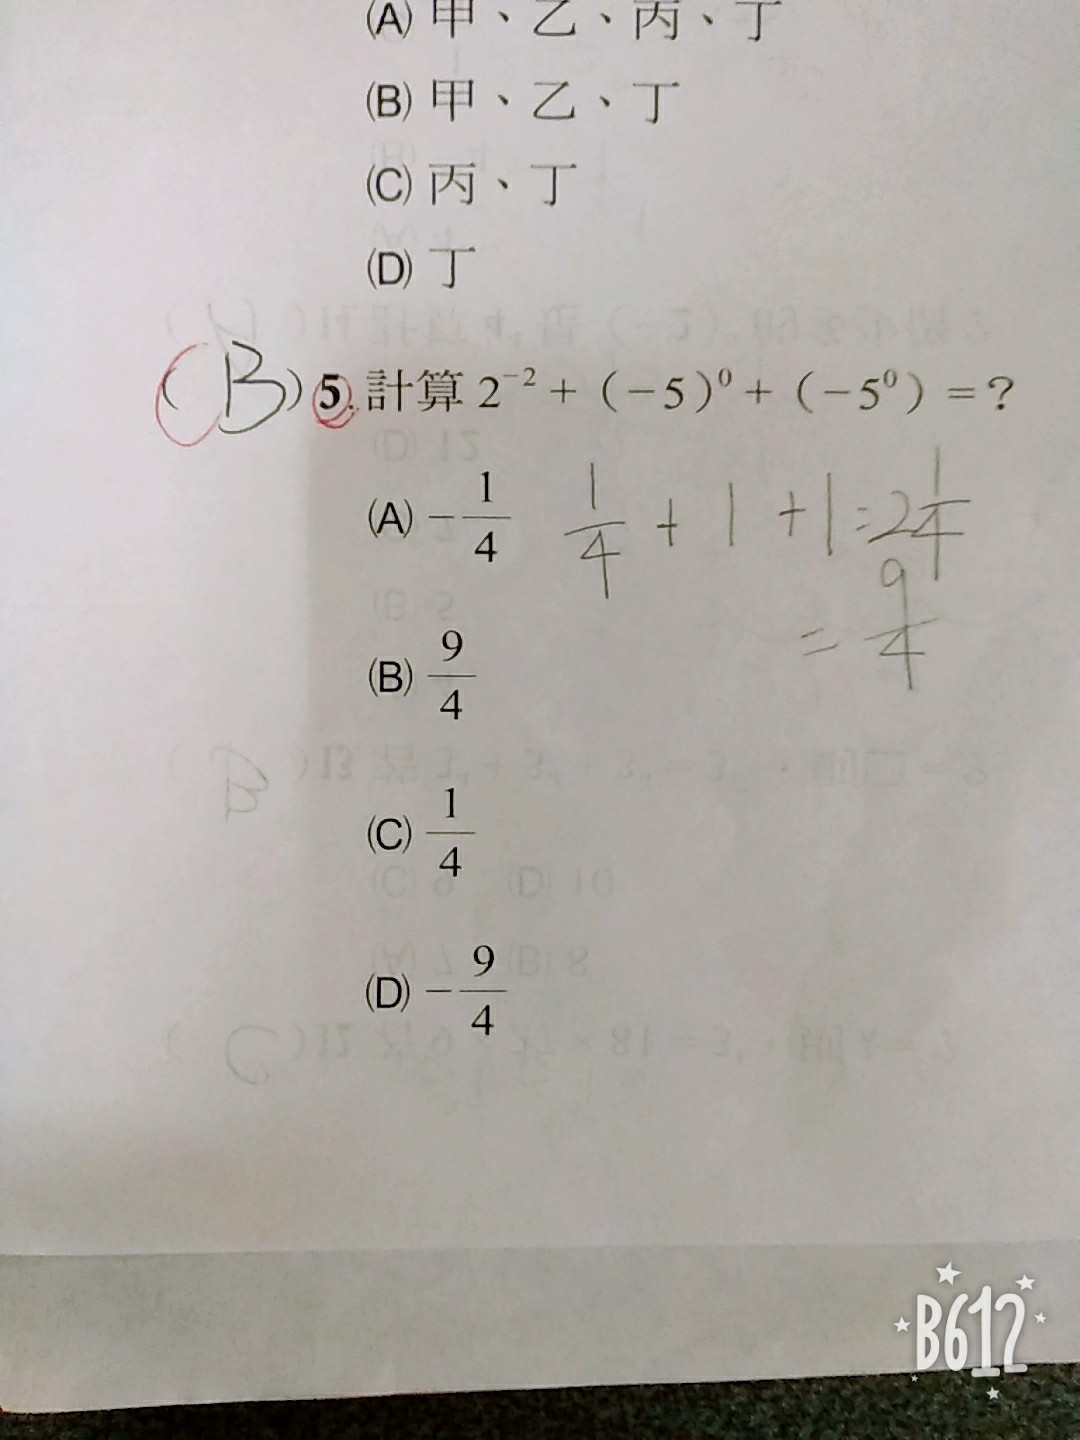 (A) 甲、乙、丙、丁
(B) 甲、乙、丁
(C) 丙、丁
(D) 丁
(B) 5. 計算 2⁻² + (−5)⁰ + (−5⁰) = ?
(A) −1/4
1/4 + 1 + 1 = 2 1/4
= 9/4
(B) 9/4
(C) 1/4
(D) −9/4
B612